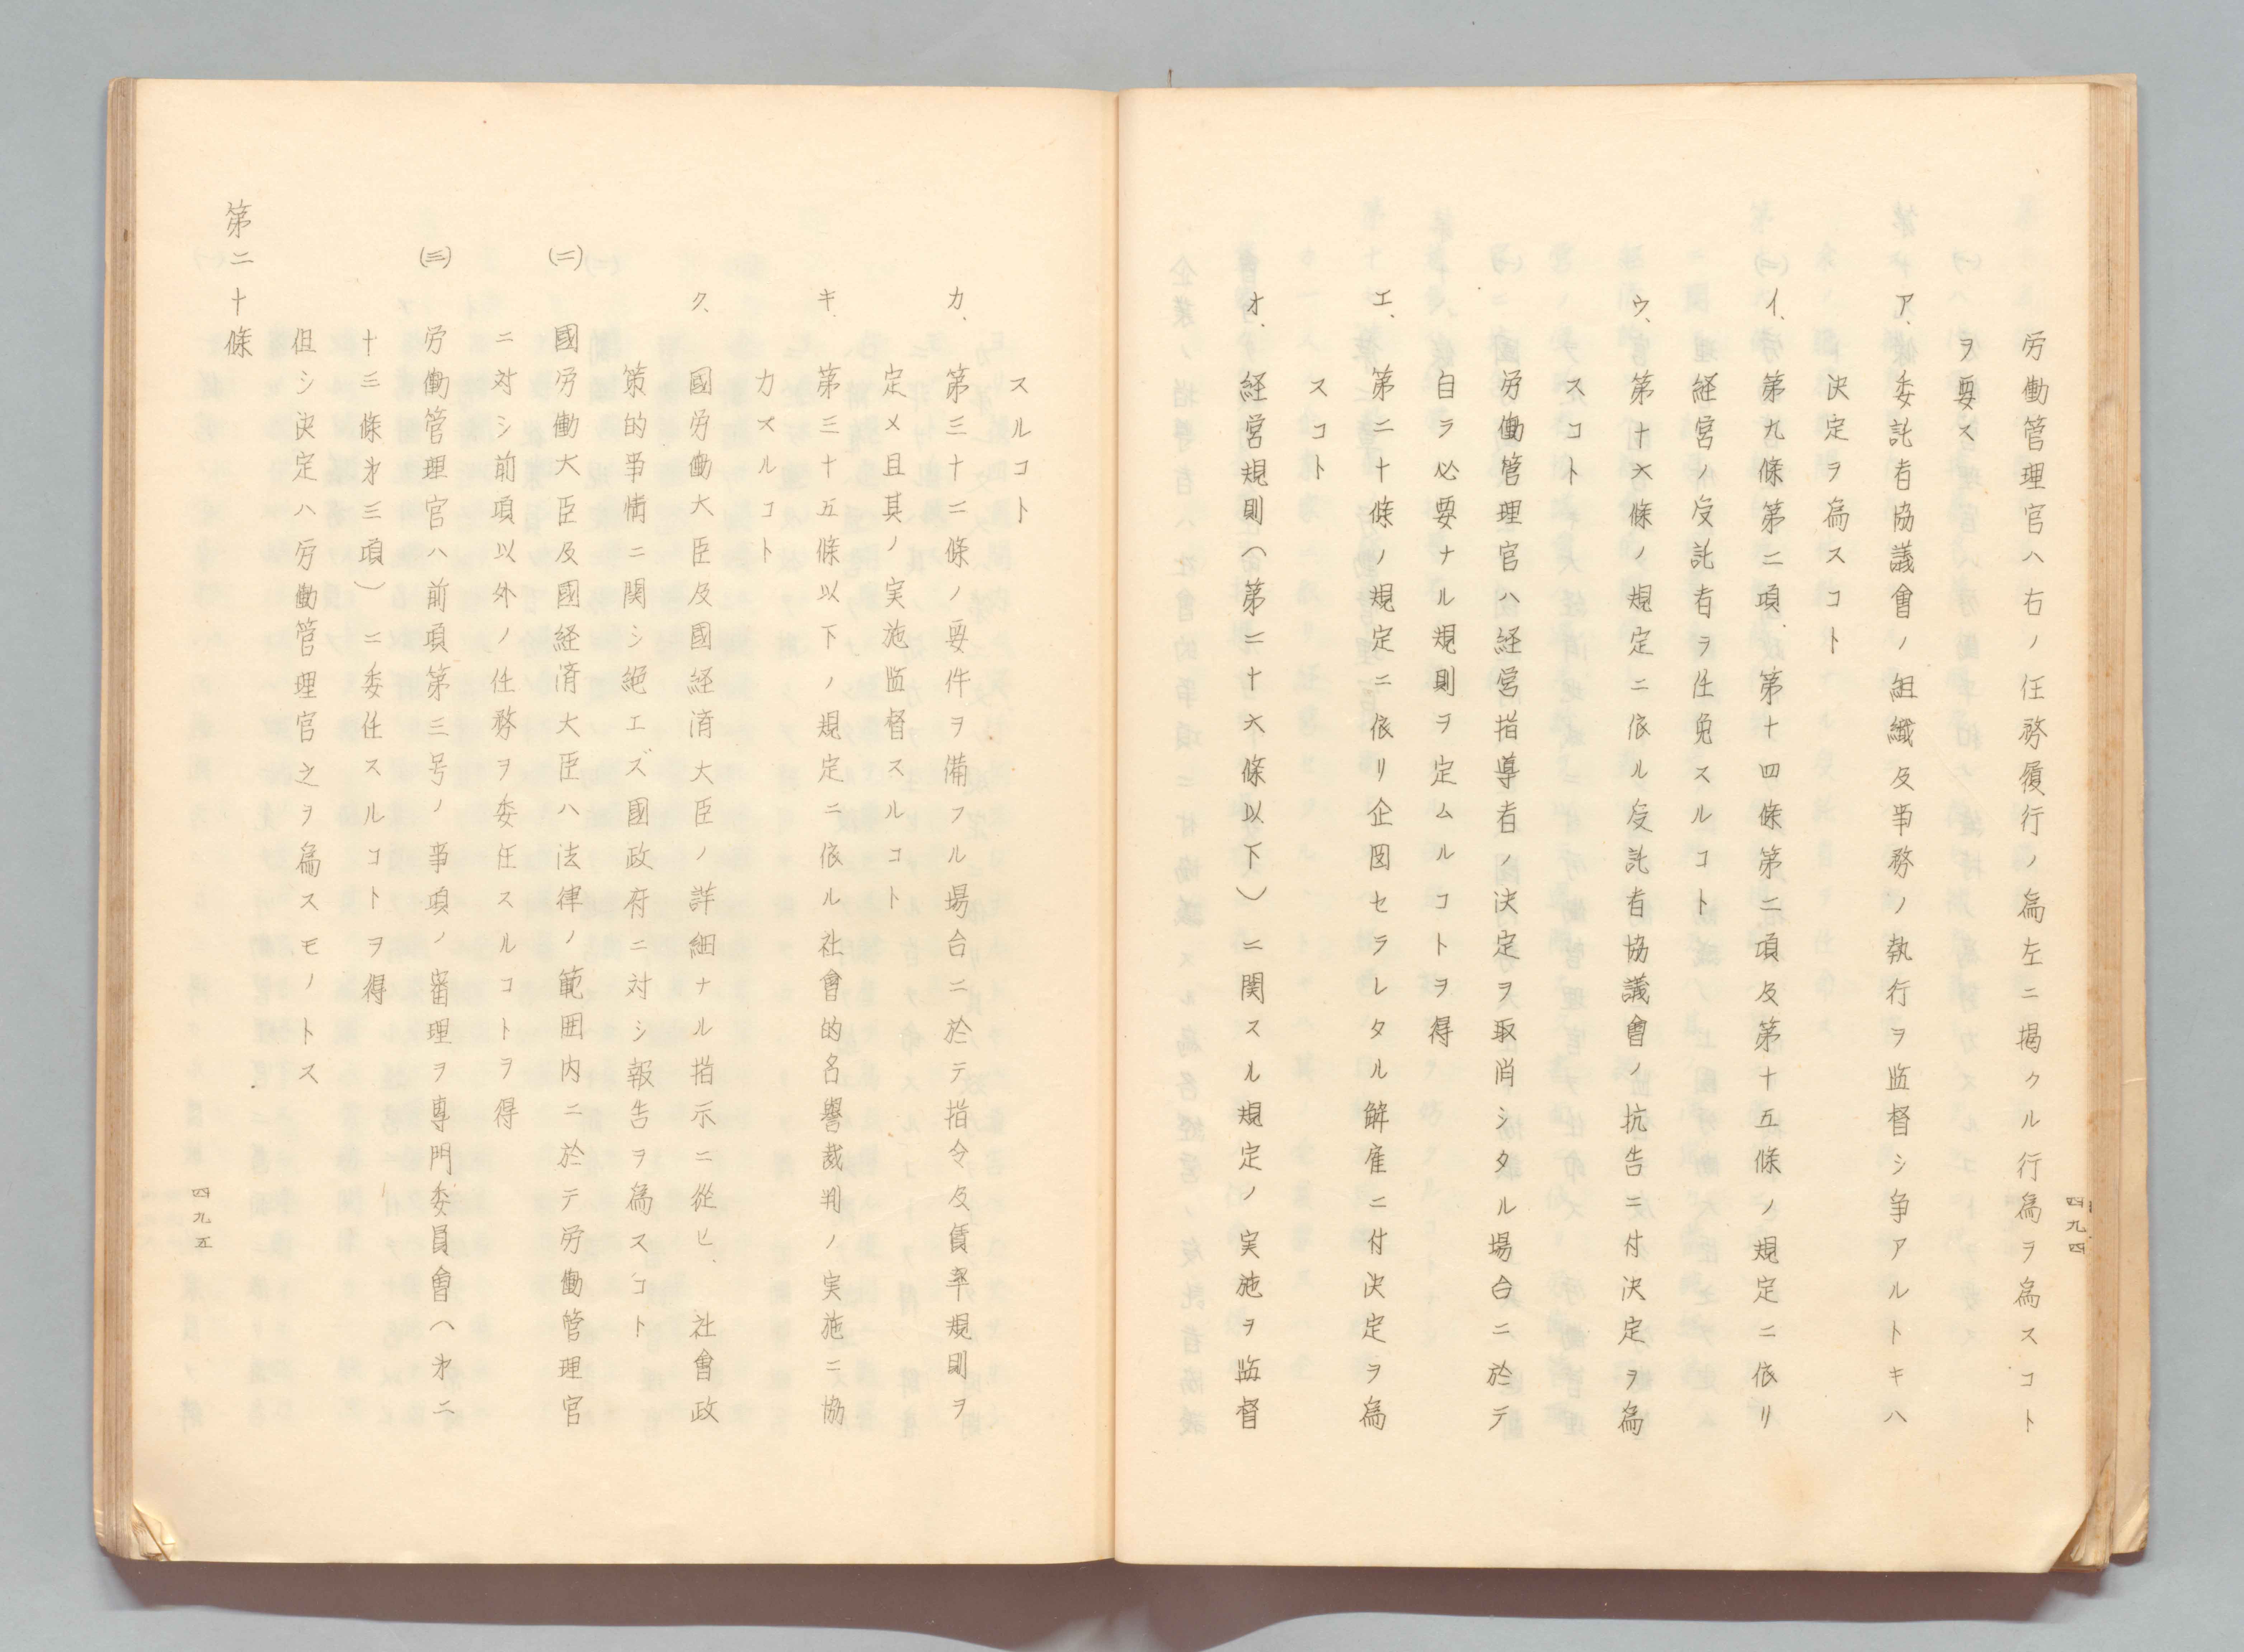 四九四
労働管理官ハ右ノ任務履行ノ為左ニ掲クル行為ヲ為スコト
ヲ要ス
ア、委託者協議會ノ組織及事務ノ執行ヲ監督シ争アルトキハ
決定ヲ為スコト
イ、第九條第二項、第十四條第二項及第十五條ノ規定ニ依リ
経営ノ受託者ヲ任免スルコト
ウ、第十六條ノ規定ニ依ル受託者協議會ノ抗告ニ付決定ヲ為
スコト
労働管理官ハ経営指導者ノ決定ヲ取消シタル場合ニ於テ
自ラ必要ナル規則ヲ定ムルコトヲ得
エ、第二十條ノ規定ニ依リ企図セラレタル解雇ニ付決定ヲ為
スコト
オ、経営規則(第二十六條以下)ニ関スル規定ノ実施ヲ監督
スルコト
カ、第三十二條ノ要件ヲ備フル場合ニ於テ指令及賃率規則ヲ
定メ且其ノ実施監督スルコト
キ、第三十五條以下ノ規定ニ依ル社會的名譽裁判ノ実施ニ協
力スルコト
ク、國労働大臣及國経済大臣ノ詳細ナル指示ニ從ヒ、社會政
策的事情ニ関シ絶エズ國政府ニ対シ報告ヲ為スコト
(二)國労働大臣及國経済大臣ハ法律ノ範囲内ニ於テ労働管理官
ニ対シ前項以外ノ任務ヲ委任スルコトヲ得
(三)労働管理官ハ前項第三号ノ事項ノ審理ヲ専門委員會(第二
十三條第三項)ニ委任スルコトヲ得
但シ決定ハ労働管理官之ヲ為スモノトス
第二十條
四九五